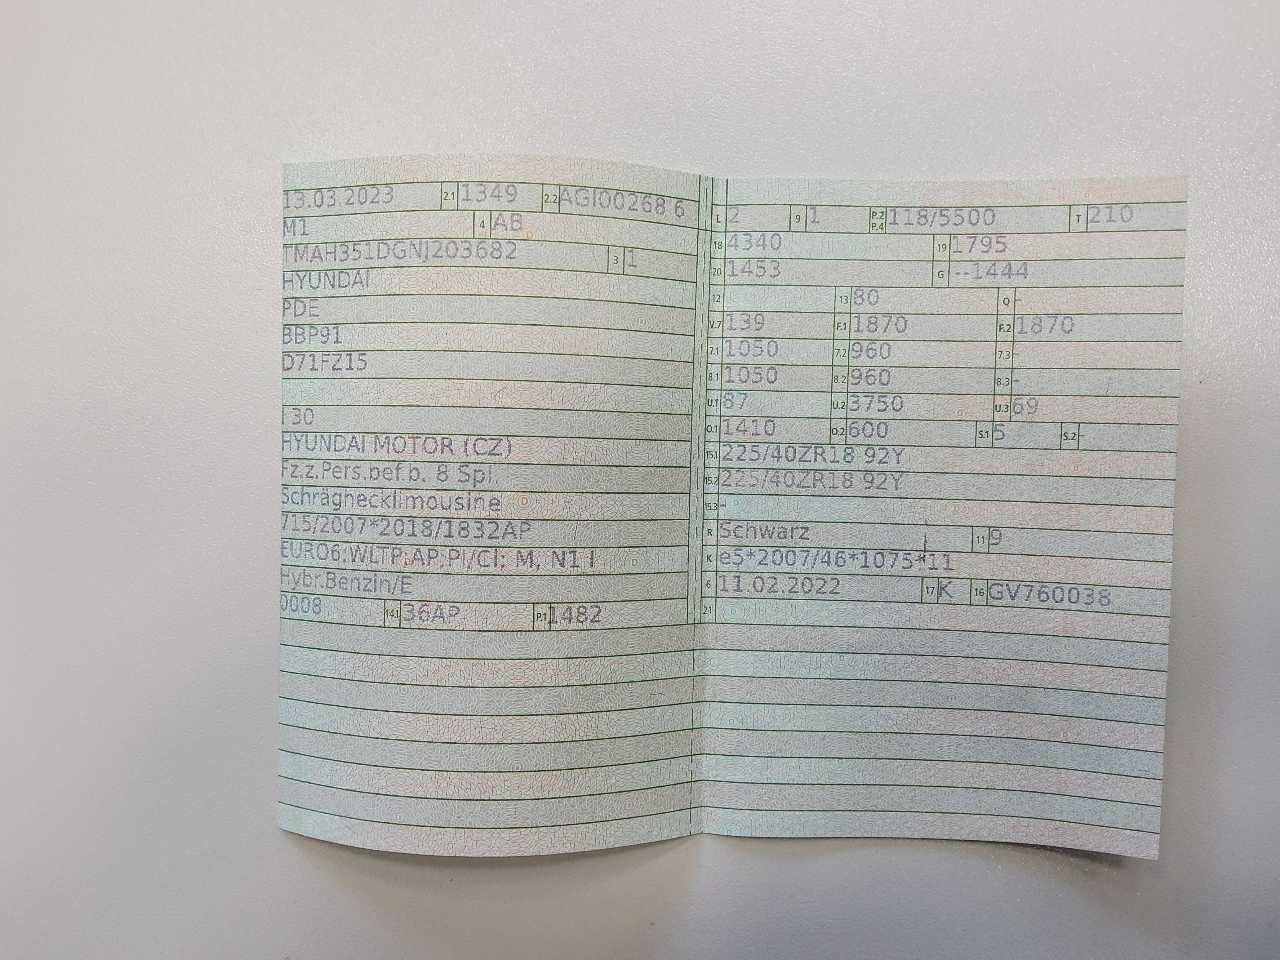 13.03.2023 2.1 1349 2.2 AGI00268 6
M1 4 AB
TMAH351DGNJ203682 3 1
HYUNDAI
PDE
BBP91
D71FZ15
i 30
HYUNDAI MOTOR (CZ)
Fz.z.Pers.bef.b. 8 Spl.
Schräghecklimousine
715/2007*2018/1832AP
EURO6;WLTP;AP;PI/CI; M, N1 I
Hybr.Benzin/E
0008 14.1 36AP P.1 1482
L 2 9 1 P.2 P.4 118/5500 T 210
18 4340 19 1795
20 1453 G --1444
12 13 80 Q -
V.7 139 F.1 1870 F.2 1870
7.1 1050 7.2 960 7.3 -
8.1 1050 8.2 960 8.3 -
U.1 87 U.2 3750 U.3 69
O.1 1410 O.2 600 S.1 5 S.2 -
15.1 225/40ZR18 92Y
15.2 225/40ZR18 92Y
15.3 -
R Schwarz 11 9
K e5*2007/46*1075*11
6 11.02.2022 17 K 16 GV760038
21